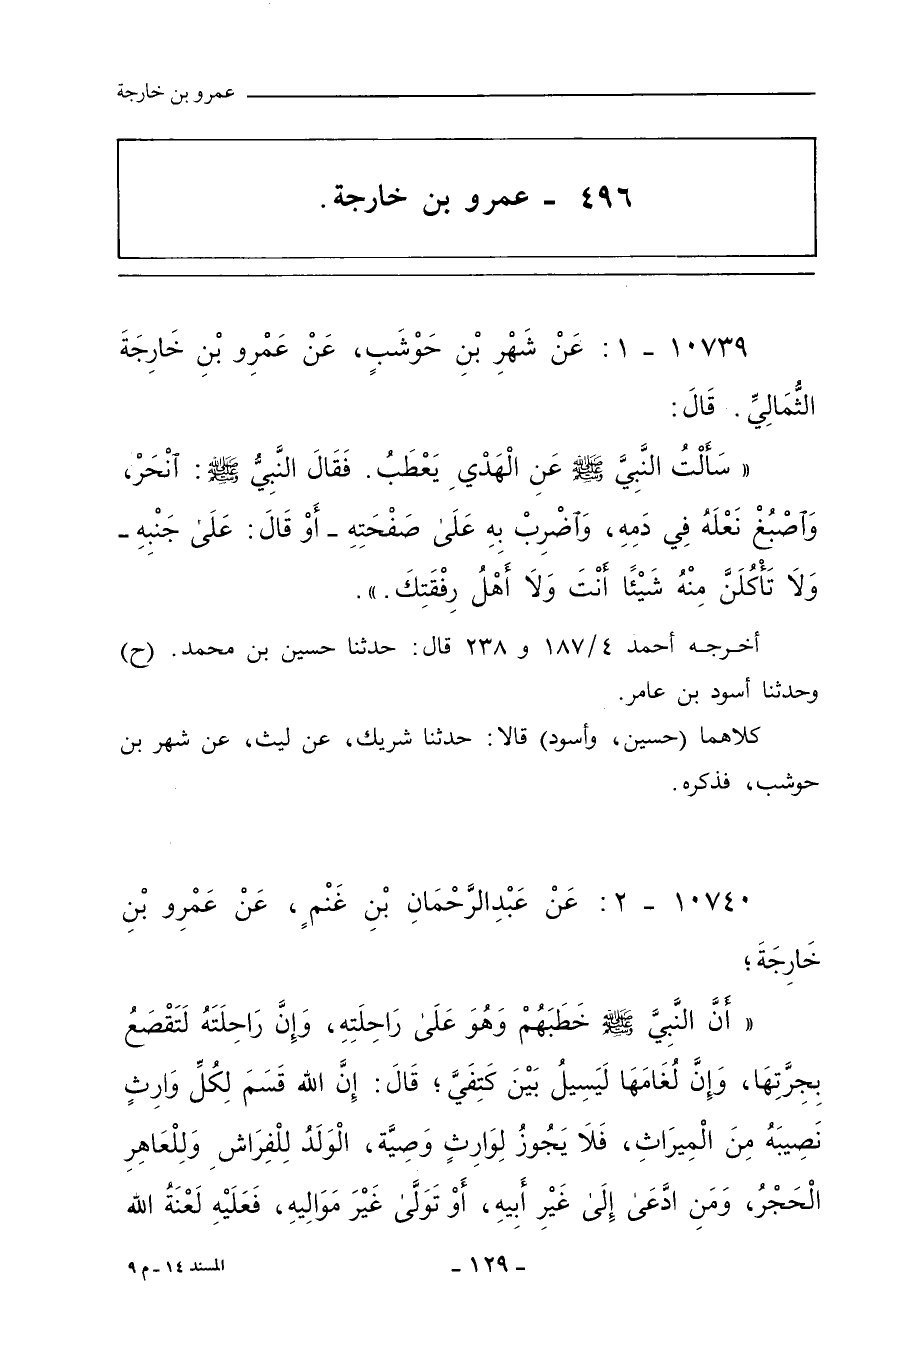 عمرو بن خارجة
٤٩٦ - عمرو بن خارجة .
١٠٧٣٩ - ١ : عَنْ شَهْرِ بْنِ حَوْشَبٍ، عَنْ عَمْرِو بْنِ خَارِجَةَ
الثُّمَالِيِّ . قَالَ :
« سَأَلْتُ النَّبِيَّ ﷺ عَنِ الْهَدْيِ يَعْطَبُ . فَقَالَ النَّبِيُّ ﷺ : ٱنْحَرْ،
وَٱصْبُغْ نَعْلَهُ فِي دَمِهِ، وَٱضْرِبْ بِهِ عَلَىٰ صَفْحَتِهِ - أَوْ قَالَ : عَلَىٰ جَنْبِهِ -
وَلَا تَأْكُلَنَّ مِنْهُ شَيْئًا أَنْتَ وَلَا أَهْلُ رِفْقَتِكَ . » .
أخرجه أحمد ٤/١٨٧ و ٢٣٨ قال : حدثنا حسين بن محمد . (ح)
وحدثنا أسود بن عامر .
كلاهما (حسين، وأسود) قالا : حدثنا شريك، عن ليث، عن شهر بن
حوشب، فذكره .
١٠٧٤٠ - ٢ : عَنْ عَبْدِالرَّحْمَانِ بْنِ غَنْمٍ، عَنْ عَمْرِو بْنِ
خَارِجَةَ ؛
« أَنَّ النَّبِيَّ ﷺ خَطَبَهُمْ وَهُوَ عَلَىٰ رَاحِلَتِهِ، وَإِنَّ رَاحِلَتَهُ لَتَقْصَعُ
بِجِرَّتِهَا، وَإِنَّ لُغَامَهَا لَيَسِيلُ بَيْنَ كَتِفَيَّ ؛ قَالَ : إِنَّ الله قَسَمَ لِكُلِّ وَارِثٍ
نَصِيبَهُ مِنَ الْمِيرَاثِ، فَلَا يَجُوزُ لِوَارِثٍ وَصِيَّة، الْوَلَدُ لِلْفِرَاشِ وَلِلْعَاهِرِ
الْحَجْرُ، وَمَنِ ادَّعَىٰ إِلَىٰ غَيْرِ أَبِيهِ، أَوْ تَوَلَّىٰ غَيْرَ مَوَالِيهِ، فَعَلَيْهِ لَعْنَةُ الله
- ١٢٩ -
المسند ١٤ - م ٩